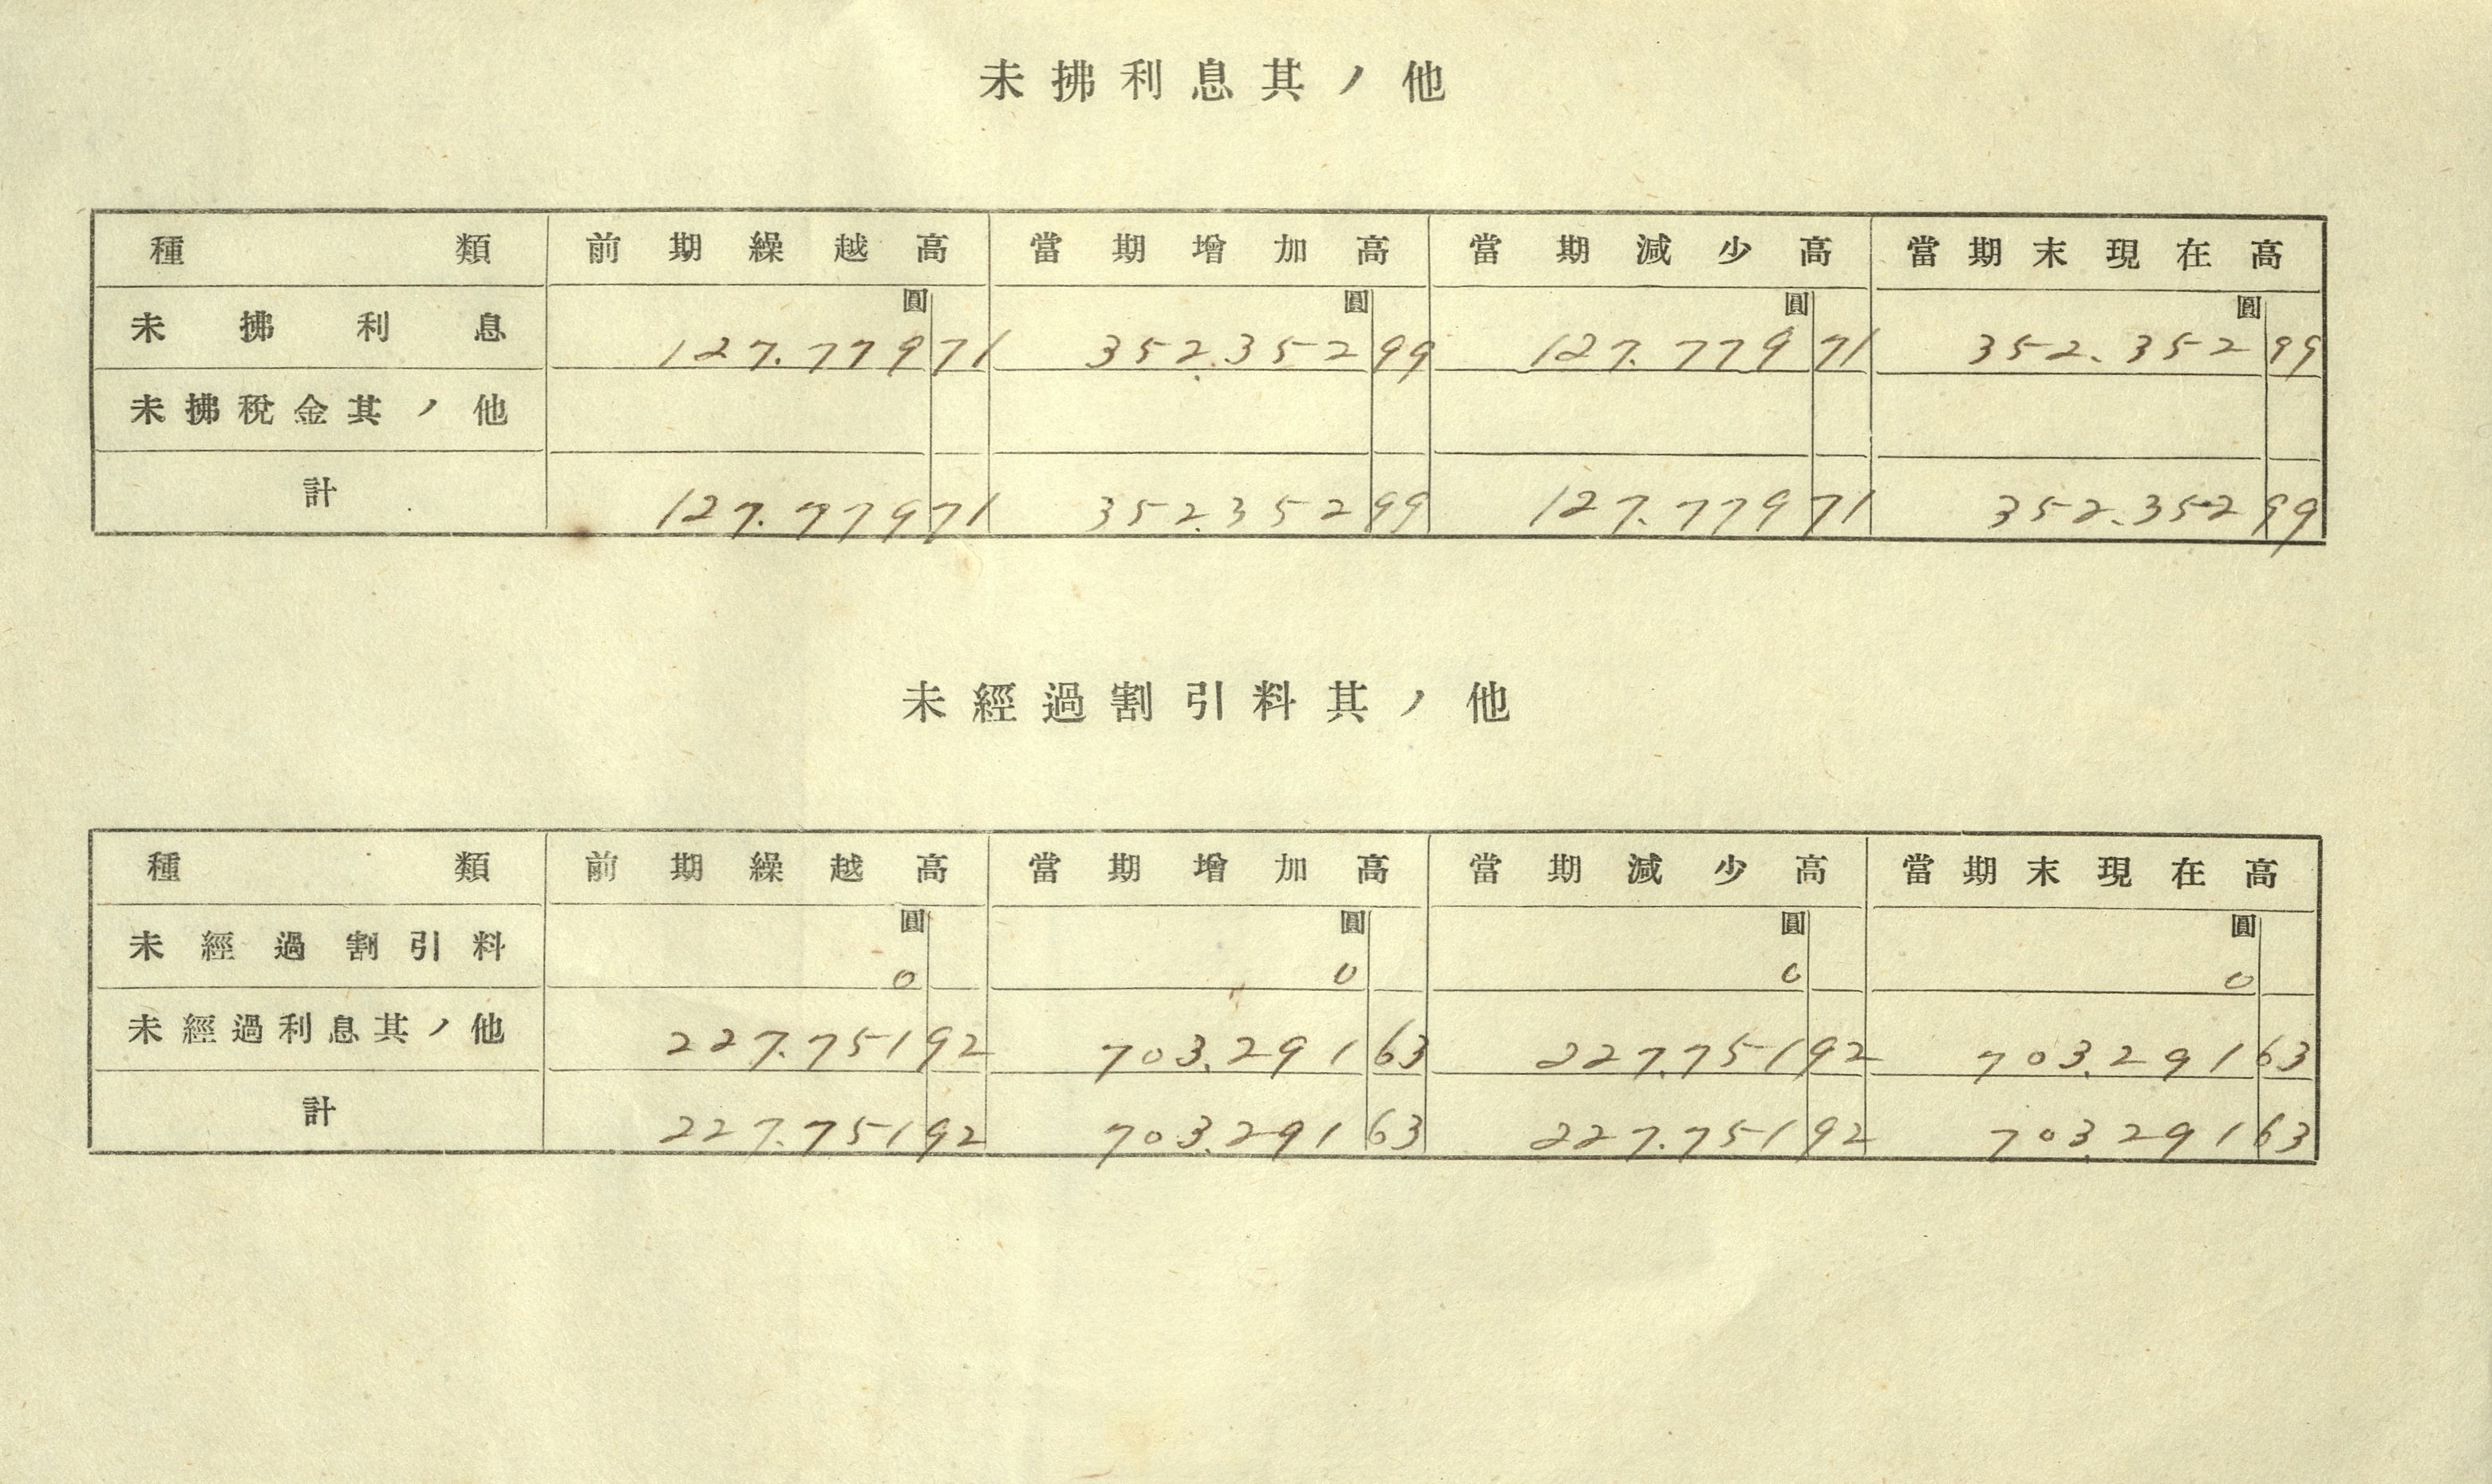 未拂利息其ノ他
種類 前期繰越高 當期增加高 當期減少高 當期末現在高
圓 圓 圓 圓
未拂利息 127.779 71 352.352 99 127.779 71 352.352 99
未拂稅金其ノ他
計 127.779 71 352.352 99 127.779 71 352.352 99
未經過割引料其ノ他
種類 前期繰越高 當期增加高 當期減少高 當期末現在高
圓 圓 圓 圓
未經過割引料 0 0 0 0
未經過利息其ノ他 227.751 92 703.291 63 227.751 92 703.291 63
計 227.751 92 703.291 63 227.751 92 703.291 63